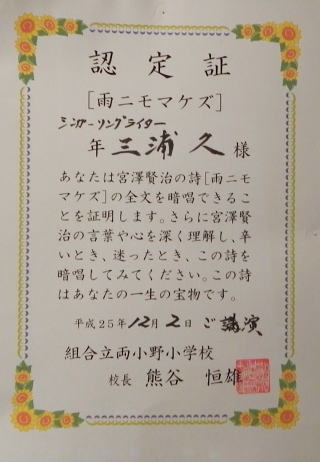 認定証
[雨ニモマケズ]
シンガーソングライター
年 三浦 久 様
あなたは宮澤賢治の詩[雨ニモ
マケズ]の全文を暗唱できるこ
とを証明します。さらに宮澤賢
治の言葉や心を深く理解し、辛
いとき、迷ったとき、この詩を
暗唱してみてください。この詩
はあなたの一生の宝物です。
平成25年12月2日 ご講演
組合立両小野小学校
校長 熊谷 恒雄